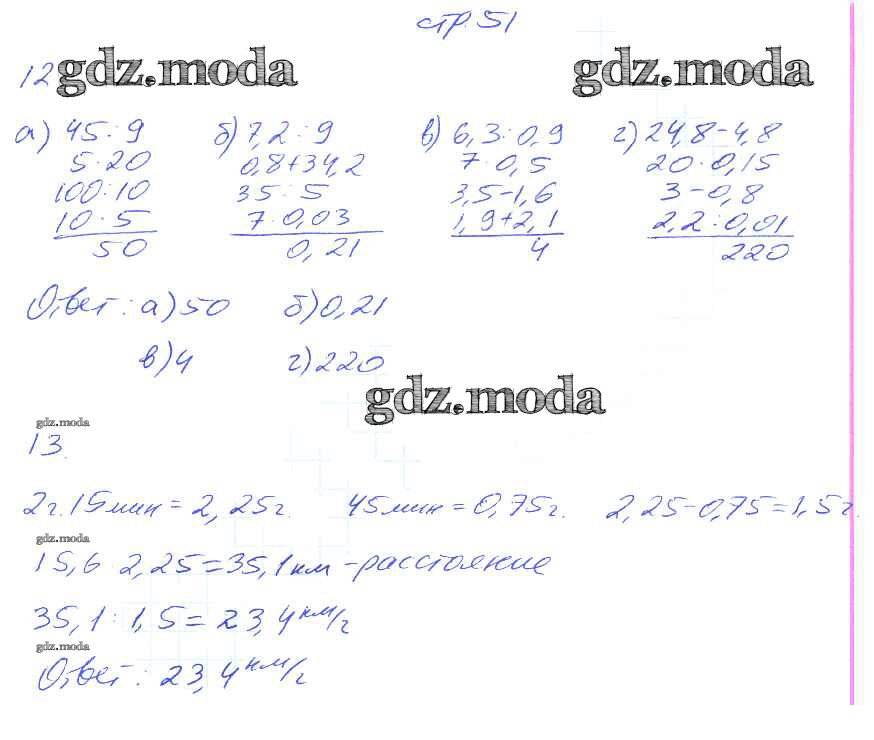 стр. 51
12 gdz.moda gdz.moda
а) 45 : 9 б) 7,2 : 9 в) 6,3 : 0,9 г) 24,8 - 4,8
5 · 20 0,8 + 34,2 7 · 0,5 20 · 0,15
100 : 10 35 : 5 3,5 - 1,6 3 - 0,8
10 · 5 7 · 0,03 1,9 + 2,1 2,2 : 0,01
50 0,21 4 220
Ответ: а) 50 б) 0,21
в) 4 г) 220
gdz.moda
gdz.moda
13.
2г. 15 мин = 2,25г. 45 мин = 0,75г. 2,25 - 0,75 = 1,5г.
gdz.moda
15,6 · 2,25 = 35,1 км - расстояние
35,1 : 1,5 = 23,4 км/г
gdz.moda
Ответ: 23,4 км/г